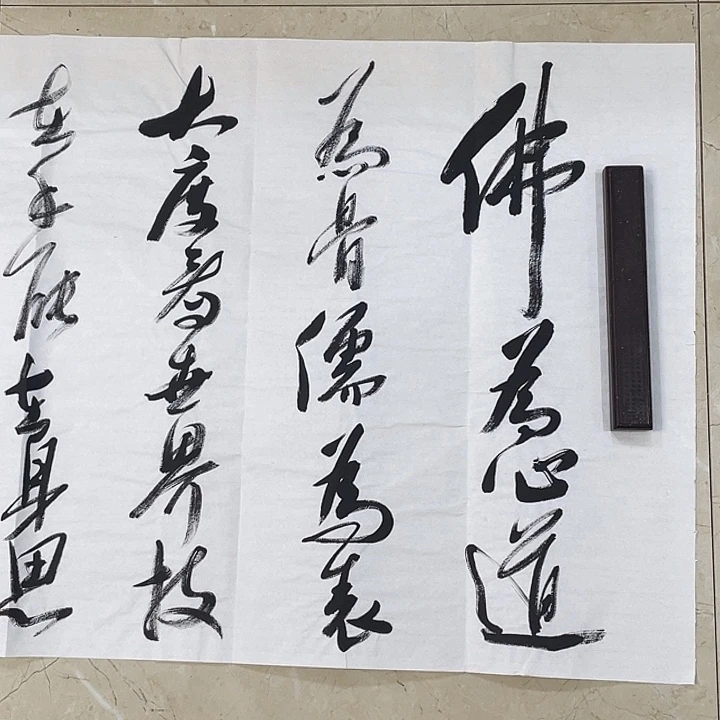 佛為心道
为骨儒為表
大度看世界技
在手能在身思